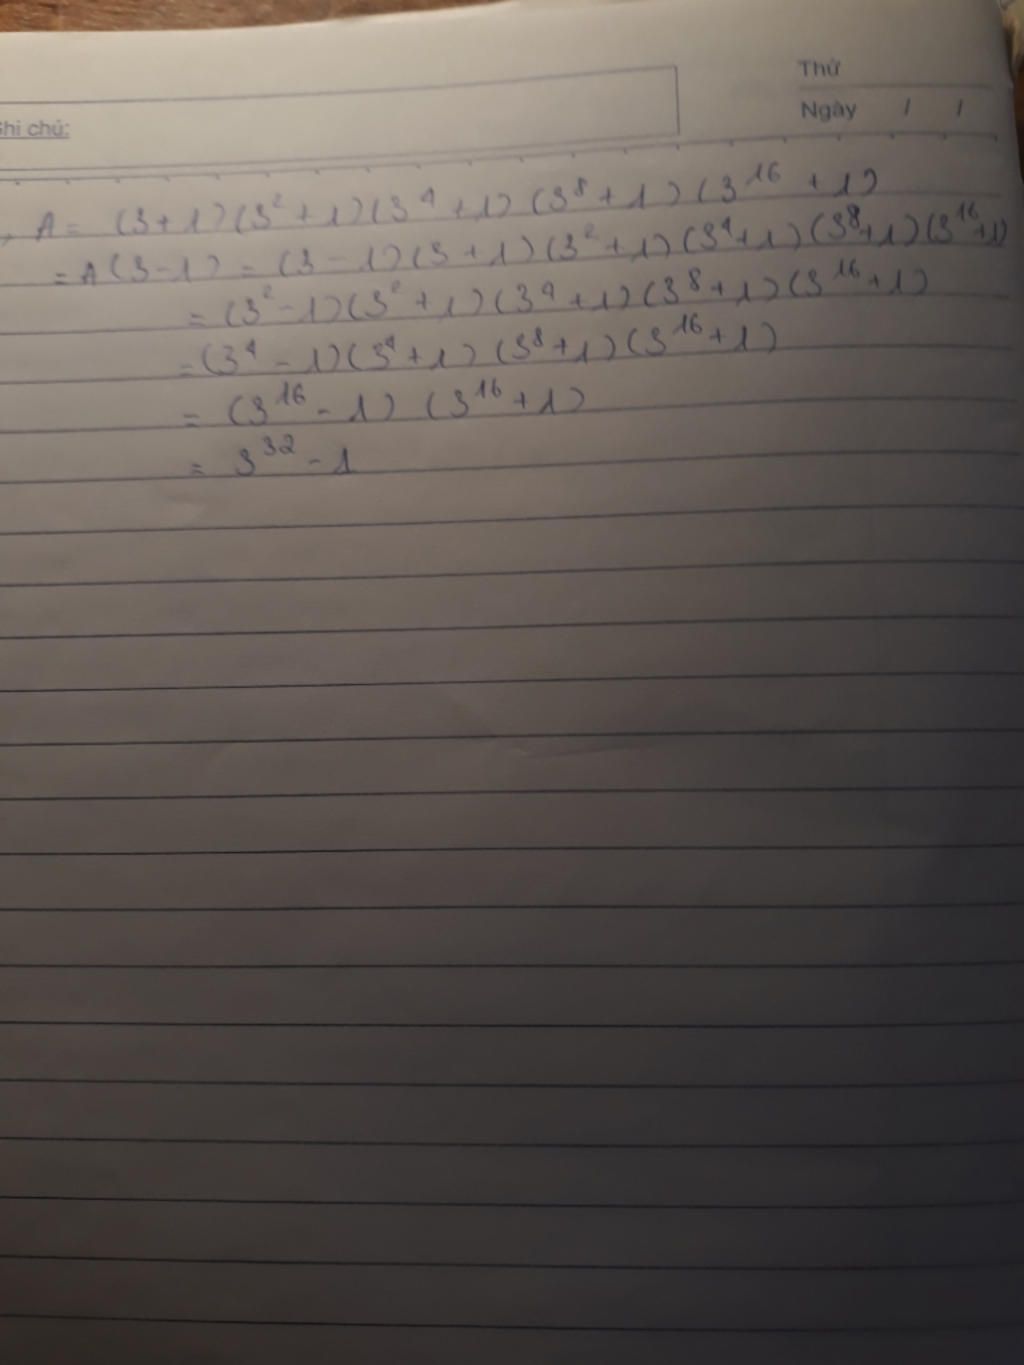 Thứ
Ghi chú:
Ngày / /
A = (3+1)(3²+1)(3⁴+1)(3⁸+1)(3¹⁶+1)
= A(3-1) = (3-1)(3+1)(3²+1)(3⁴+1)(3⁸+1)(3¹⁶+1)
= (3²-1)(3²+1)(3⁴+1)(3⁸+1)(3¹⁶+1)
= (3⁴-1)(3⁴+1)(3⁸+1)(3¹⁶+1)
= (3¹⁶-1)(3¹⁶+1)
= 3³²-1